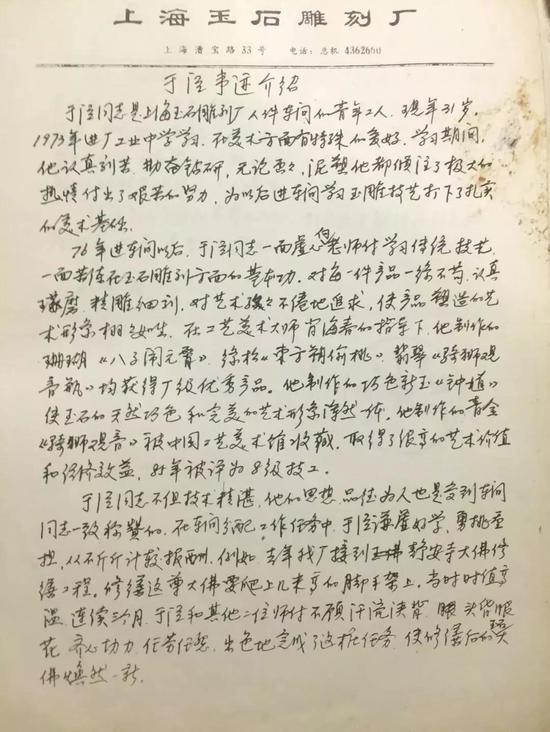 上海玉石雕刻厂
上海漕宝路33号 电话:总机 4362660
于泾事迹介绍
于泾同志是上海玉石雕刻厂人件车间的青年工人,现年31岁。
1973年进厂工业中学学习,在美术方面有特殊的爱好,学习期间,
他认真刻苦,勤奋钻研,无论画、泥塑他都倾注了极大的
热情付出了艰苦的努力,为以后进车间学习玉雕技艺打下了扎实
的美术基础。
76年进车间以后,于泾同志一面虚心向老师付学习传统技艺,
一面苦练在玉石雕刻方面的基本功,对每一件产品一丝不苟,认真
琢磨,精雕细刻,对艺术孜孜不倦地追求,使产品塑造的艺
术形象栩栩如生,在工艺美术大师肖海春的指导下,他制作的
珊瑚《八子闹元宵》、绿松《东方朔偷桃》、翡翠《骑狮观
音瓶》均获得厂级优秀产品。他制作的巧色新玉《钟馗》
使玉石的天然巧色和完美的艺术形象浑然一体。他制作的青金
《骑狮观音》被中国工艺美术馆收藏,取得了很高的艺术价值
和经济效益,84年被评为8级技工。
于泾同志不但技术精湛,他的思想品德为人也是受到车间
同志一致称赞的,在车间分配工作任务中,于泾谦虚好学,勇挑重
担,从不斤斤计较报酬,例如:去年我厂接到静安寺大佛修
缮工程。修缮这尊大佛要爬上几米高的脚手架上,当时时值高
温,连续三个月,于泾和其他二位师付不顾汗流浃背,腰头昏眼
花,齐心协力,任劳任怨,出色地完成了这桩任务,使修缮后的
佛焕然一新。